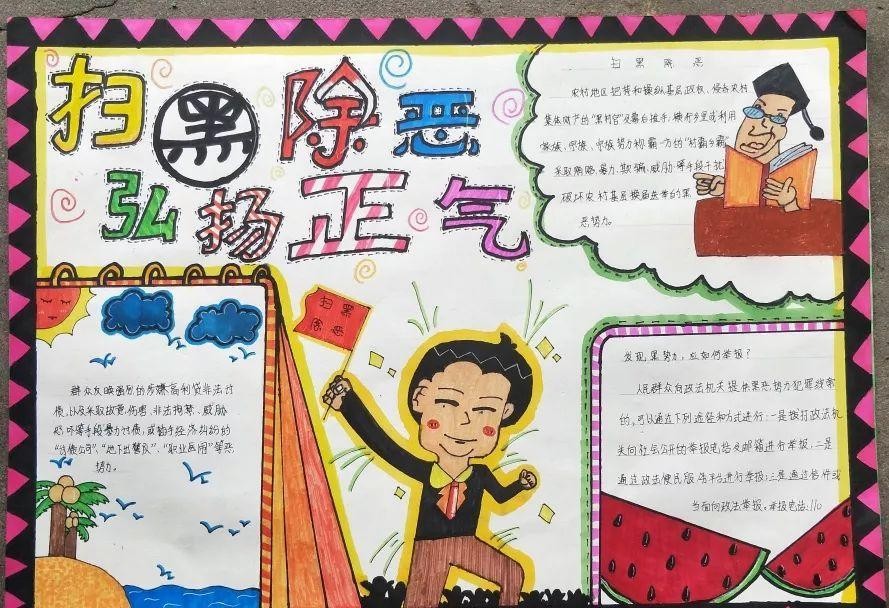 扫黑除恶
弘扬正气
扫黑除恶
农村地区把持和操纵基层政权、侵吞农村
集体财产的"黑村官"及幕后推手，横行乡里或利用
家族、宗族、宗族势力称霸一方的"村霸乡霸"
采取贿赂、暴力、欺骗、威胁等手段干扰
破坏农村基层换届选举的黑
恶势力。
扫黑
除恶
群众反映强烈的涉嫌高利贷非法讨
债，以及采取故意伤害、非法拘禁、威胁
等手段暴力讨债，或插手经济纠纷的
"讨债公司"、"地下出警队"、"职业医闹"等恶
势力。
发现黑势力，应如何举报？
人民群众向政法机关提供黑恶势力犯罪线索
的，可以通过下列途径和方式进行：一是拨打政法机
关向社会公开的举报电话及邮箱进行举报；二是
通过政法便民服务平台进行举报；三是通过信件或
当面向政法举报。举报电话：110